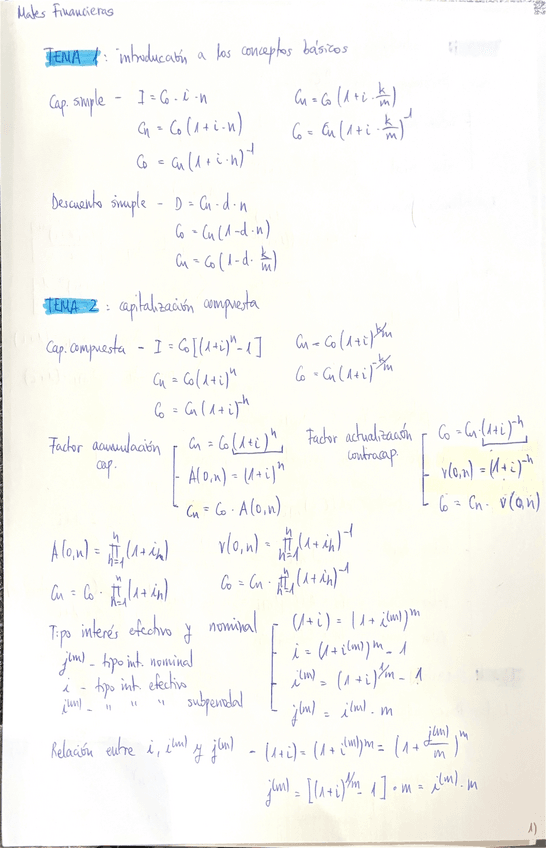 Mates Financieras
TEMA 1: introducción a los conceptos básicos
Cap. simple - I = C₀ · i · n    Cn = C₀ (1 + i · k/m)
Cn = C₀ (1 + i · n)    C₀ = Cn (1 + i · k/m)⁻¹
C₀ = Cn (1 + i · n)⁻¹
Descuento simple - D = Cn · d · n
C₀ = Cn (1 - d · n)
Cn = C₀ (1 - d · k/m)
TEMA 2: capitalización compuesta
Cap. compuesta - I = C₀ [(1+i)ⁿ - 1]    Cn = C₀ (1+i)^k/m
Cn = C₀ (1+i)ⁿ    C₀ = Cn (1+i)^-k/m
C₀ = Cn (1+i)⁻ⁿ
Factor acumulación cap.
Cn = C₀ (1+i)ⁿ
A(0,n) = (1+i)ⁿ
Cn = C₀ · A(0,n)
Factor actualización contracap.
C₀ = Cn · (1+i)⁻ⁿ
v(0,n) = (1+i)⁻ⁿ
C₀ = Cn · v(0,n)
A(0,n) = ∏ⁿₕ₌₁ (1+iₕ)    v(0,n) = ∏ⁿₕ₌₁ (1+iₕ)⁻¹
Cn = C₀ · ∏ⁿₕ₌₁ (1+iₕ)    C₀ = Cn · ∏ⁿₕ₌₁ (1+iₕ)⁻¹
Tipo interés efectivo y nominal
j^(m) - tipo int. nominal
i - tipo int. efectivo
i^(m) - " " " subperiodal
(1+i) = (1 + i^(m))^m
i = (1 + i^(m))^m - 1
i^(m) = (1+i)^1/m - 1
j^(m) = i^(m) · m
Relación entre i, i^(m) y j^(m) - (1+i) = (1 + i^(m))^m = (1 + j^(m)/m)^m
j^(m) = [(1+i)^1/m - 1] · m = i^(m) · m
1)